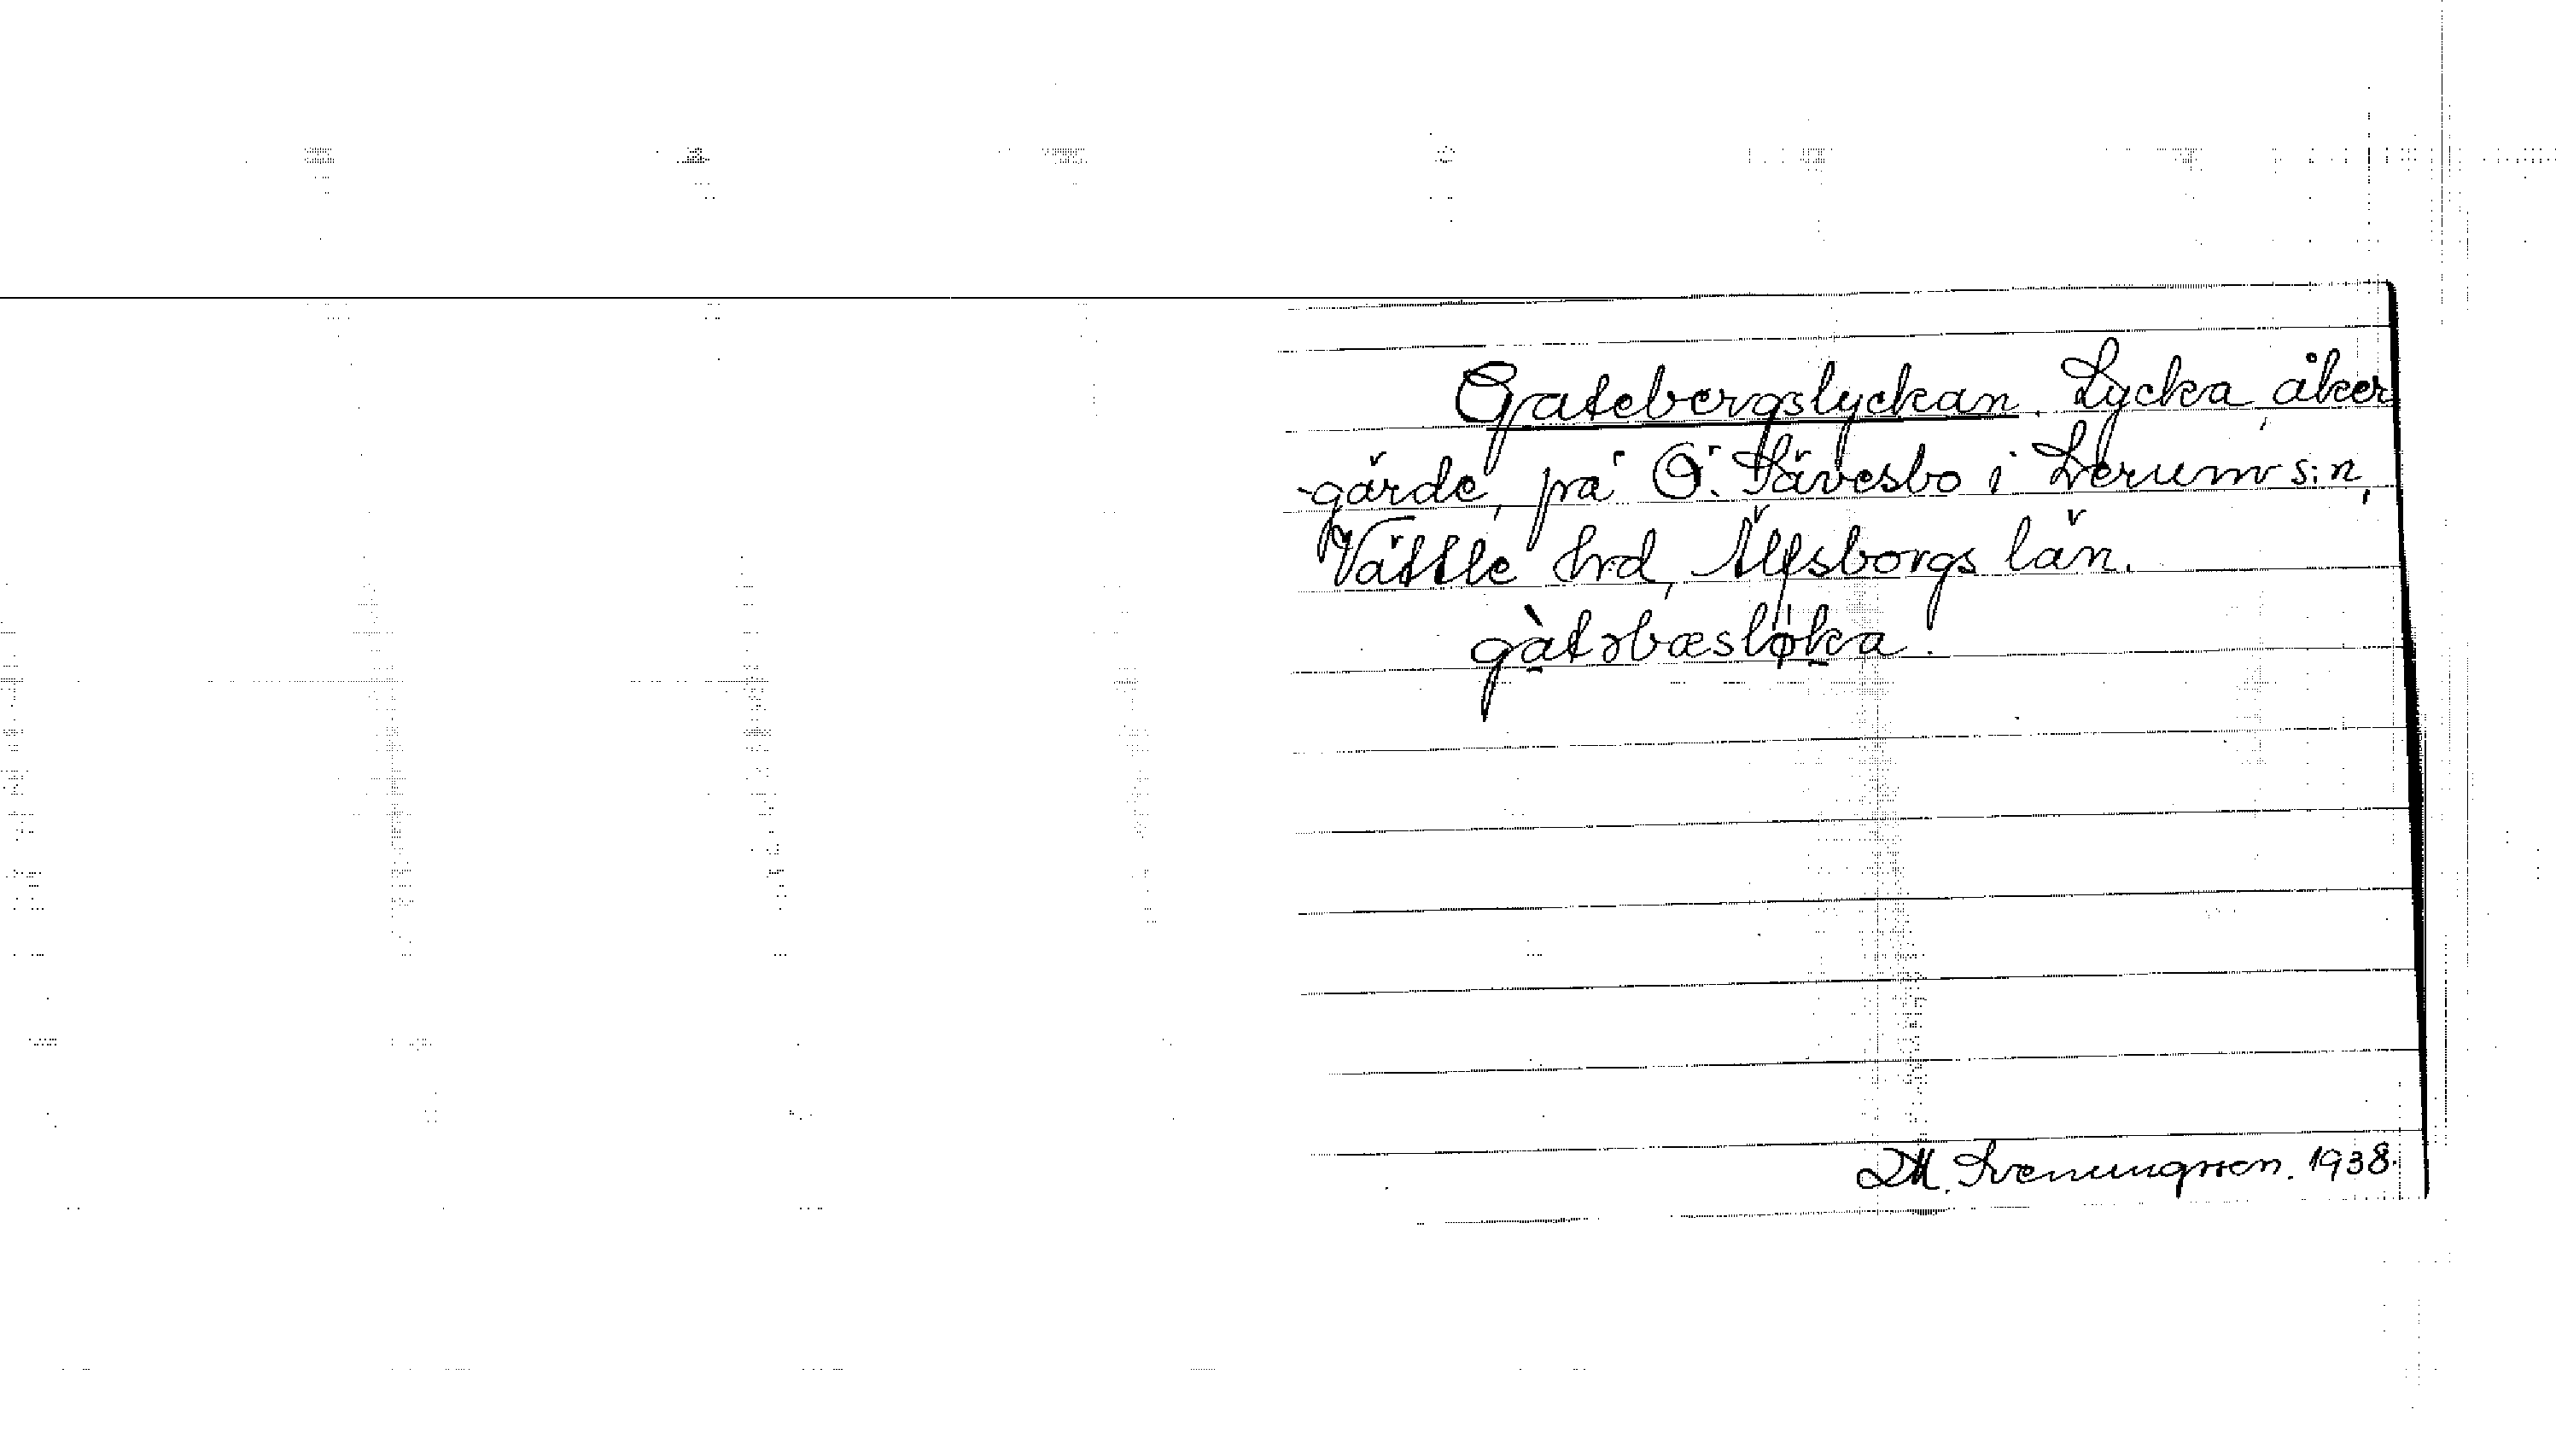 Gatebergslyckan. Lycka, åker
-gärde, på Ö. Sävesbo i Lerum s:n,
Vättle hrd, Älfsborgs län.
gàtəbæsløka.
D.M. Svenungsson. 1938.